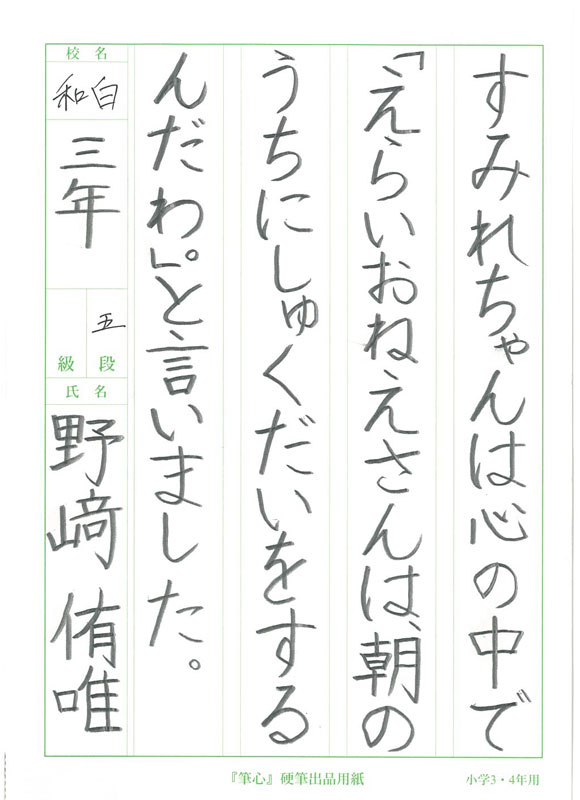 すみれちゃんは心の中で
「えらいおねえさんは、朝の
うちにしゅくだいをする
んだわ」。と言いました。
校名
和白
三年
五
段
級
氏名
野﨑 侑唯
『筆心』硬筆出品用紙
小学3・4年用